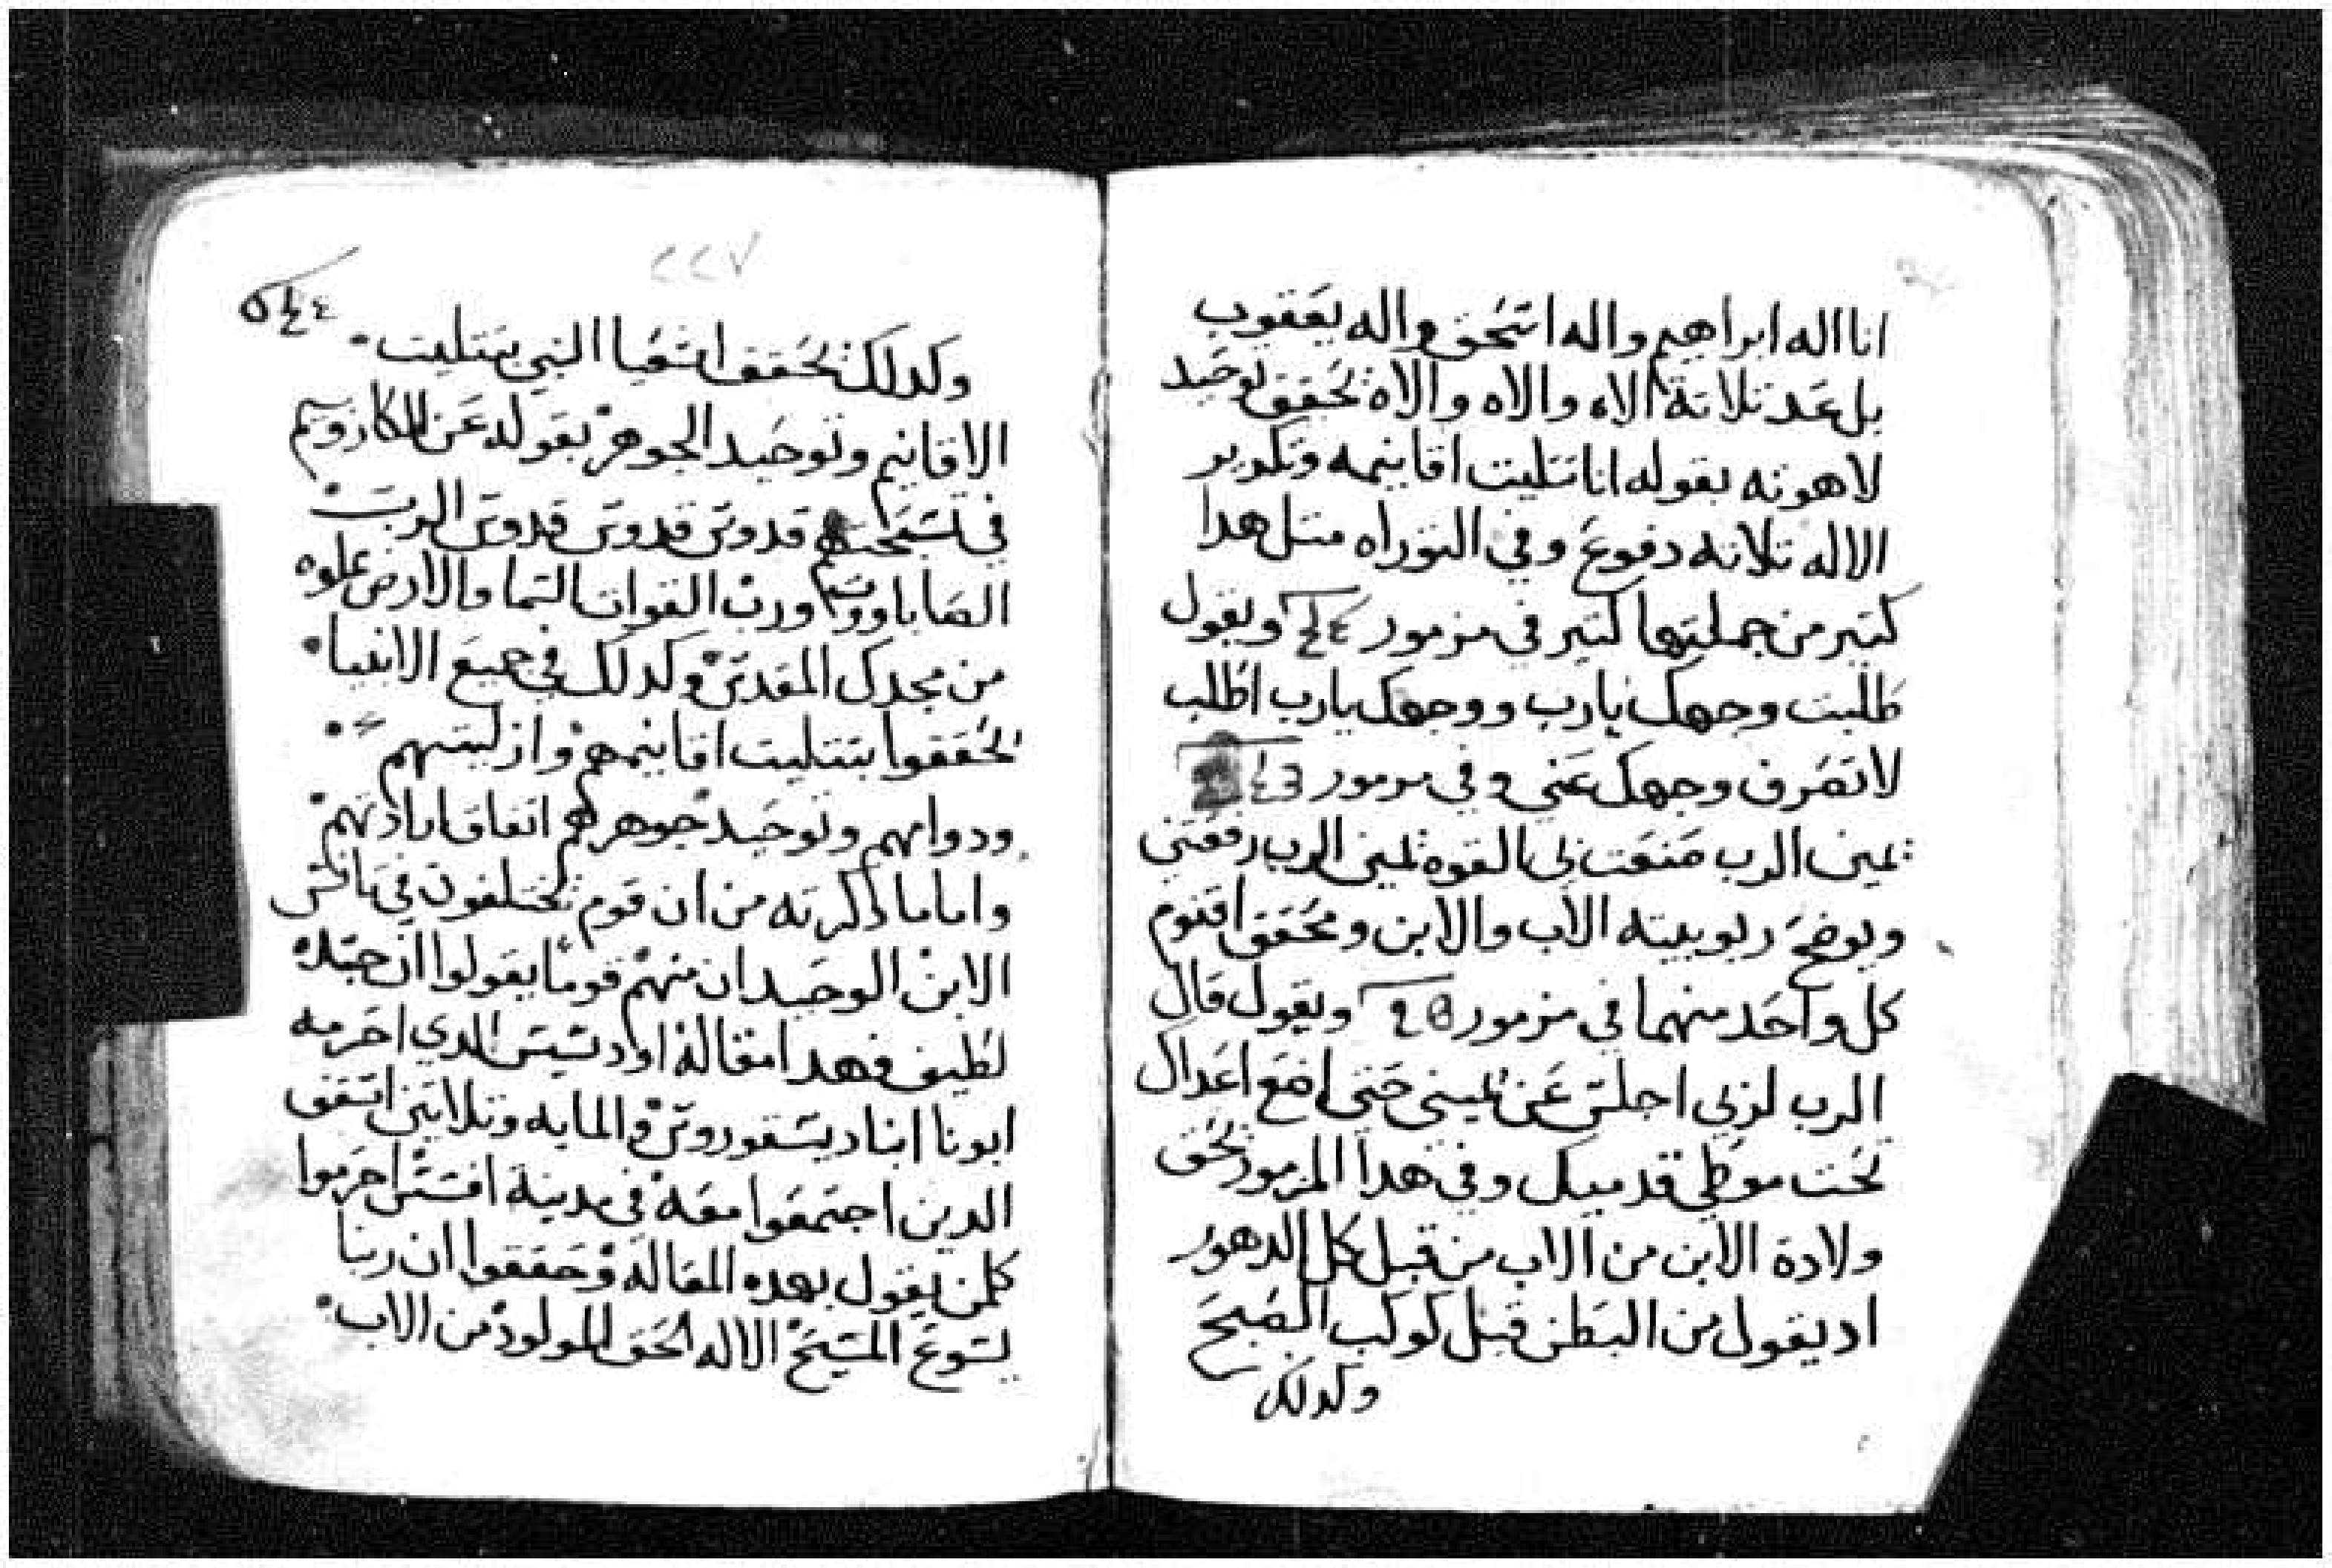 انا اله ابراهيم واله اسحق واله يعقوب
بل عد تلاتة الاه والاه والاه تحقق توحيد
لاهوته بقوله انا تتليت اقانيمه وتكرير
الاله تلاته دفوع وفي التوراه متل هدا
كتير من جملتها كتير في مزمور ويقول
طلبت وجهك يارب ووجهك يارب اطلب
لا تصرف وجهك عني وفي مزمور
يمين الرب صنعت لي القوه يمين الرب رفعتني
ويوضح ربوبيته الاب والابن ومحقق اقنوم
كل واحد منهما في مزمور ويقول قال
الرب لربي اجلس عن يميني حتى اضع اعداك
تحت موطي قدميك وفي هدا المزمور تحق
ولادة الابن من الاب من قبل كل الدهور
اد يقول من البطن قبل كوكب الصبح
وكدلك
٢٢٧
وكدلك تحقق اشعيا النبي بتتليت
الاقانيم وتوحيد الجوهر بقوله عن الكاروبيم
في تسبحتهم قدوس قدوس قدوس الرب
الصاباووت ورب القوات السما والارض مملوه
من مجدك المقدس وكدلك في جميع الانبيا
تحققوا بتتليت اقانيمهم وازليتهم
ودوامهم وتوحيد جوهرهم اتفاق ارادتهم
واما ما دكرته من ان قوم تختلفون في تانس
الابن الوحيد ان منهم قوما يقولوا ان جسده
لطيف فهدا مقالة الدي احرمه
ابونا انبا ديسقوروس والمايه وتلاتين اسقف
الدين اجتمعوا معه في مدينة افسس احرموا
كلمن يقول بهده المقاله وحققوا ان ربنا
يسوع المسيح الاله الحق المولود من الاب